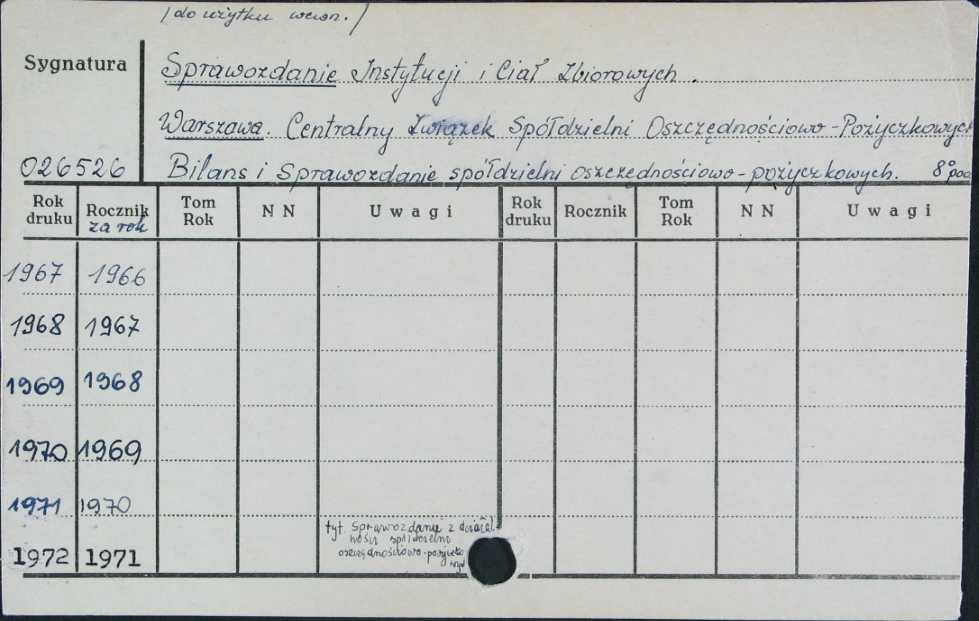 /do użytku wewn./
Sygnatura
Sprawozdanie Instytucji i Ciał Zbiorowych.
Warszawa. Centralny Związek Spółdzielni Oszczędnościowo-Pożyczkowych
026526 Bilans i Sprawozdanie spółdzielni oszczędnościowo-pożyczkowych. 8° pod
Rok druku Rocznik za rok Tom Rok N N Uwagi Rok druku Rocznik Tom Rok N N Uwagi
1967 1966
1968 1967
1969 1968
1970 1969
1971 1970
1972 1971 tyt. Sprawozdanie z działal
ności spółdzielni
oszczędnościowo-pożyczko
wych